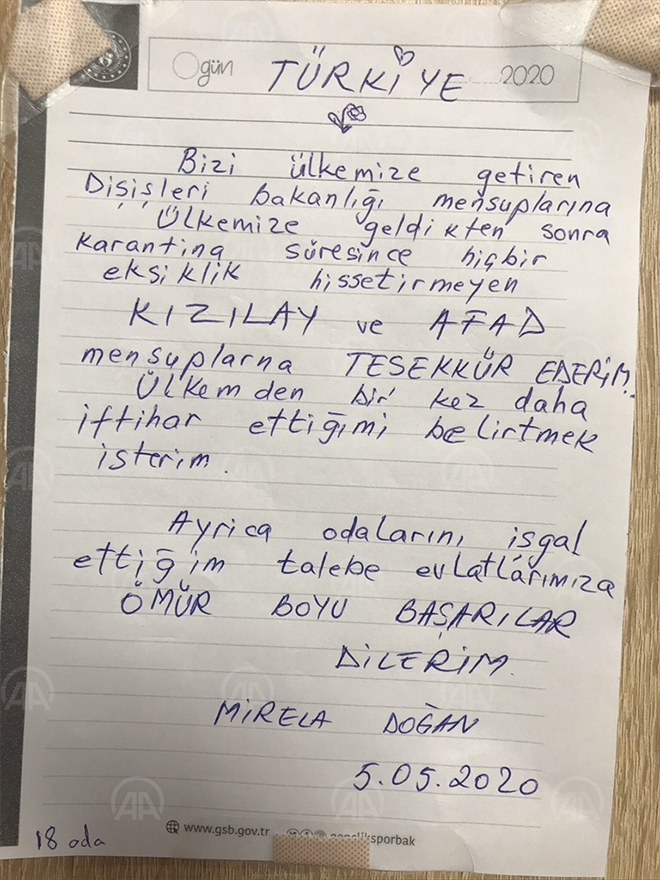 gün TÜRKİYE 2020
Bizi ülkemize getiren
Dişişleri bakanlığı mensuplarına
Ülkemize geldikten sonra
karantina süresince hiçbir
eksiklik hissetirmeyen
KIZILAY ve AFAD
mensuplarna TESEKKÜR EDERİM.
Ülkemden bir kez daha
iftihar ettiğimi belirtmek
isterim.
Ayrica odalarını işgal
ettiğim talebe evlatlarımıza
ÖMÜR BOYU BAŞARILAR
DİLERİM.
MİRELA DOĞAN
5.05.2020
www.gsb.gov.tr gencliksporbak
18 oda